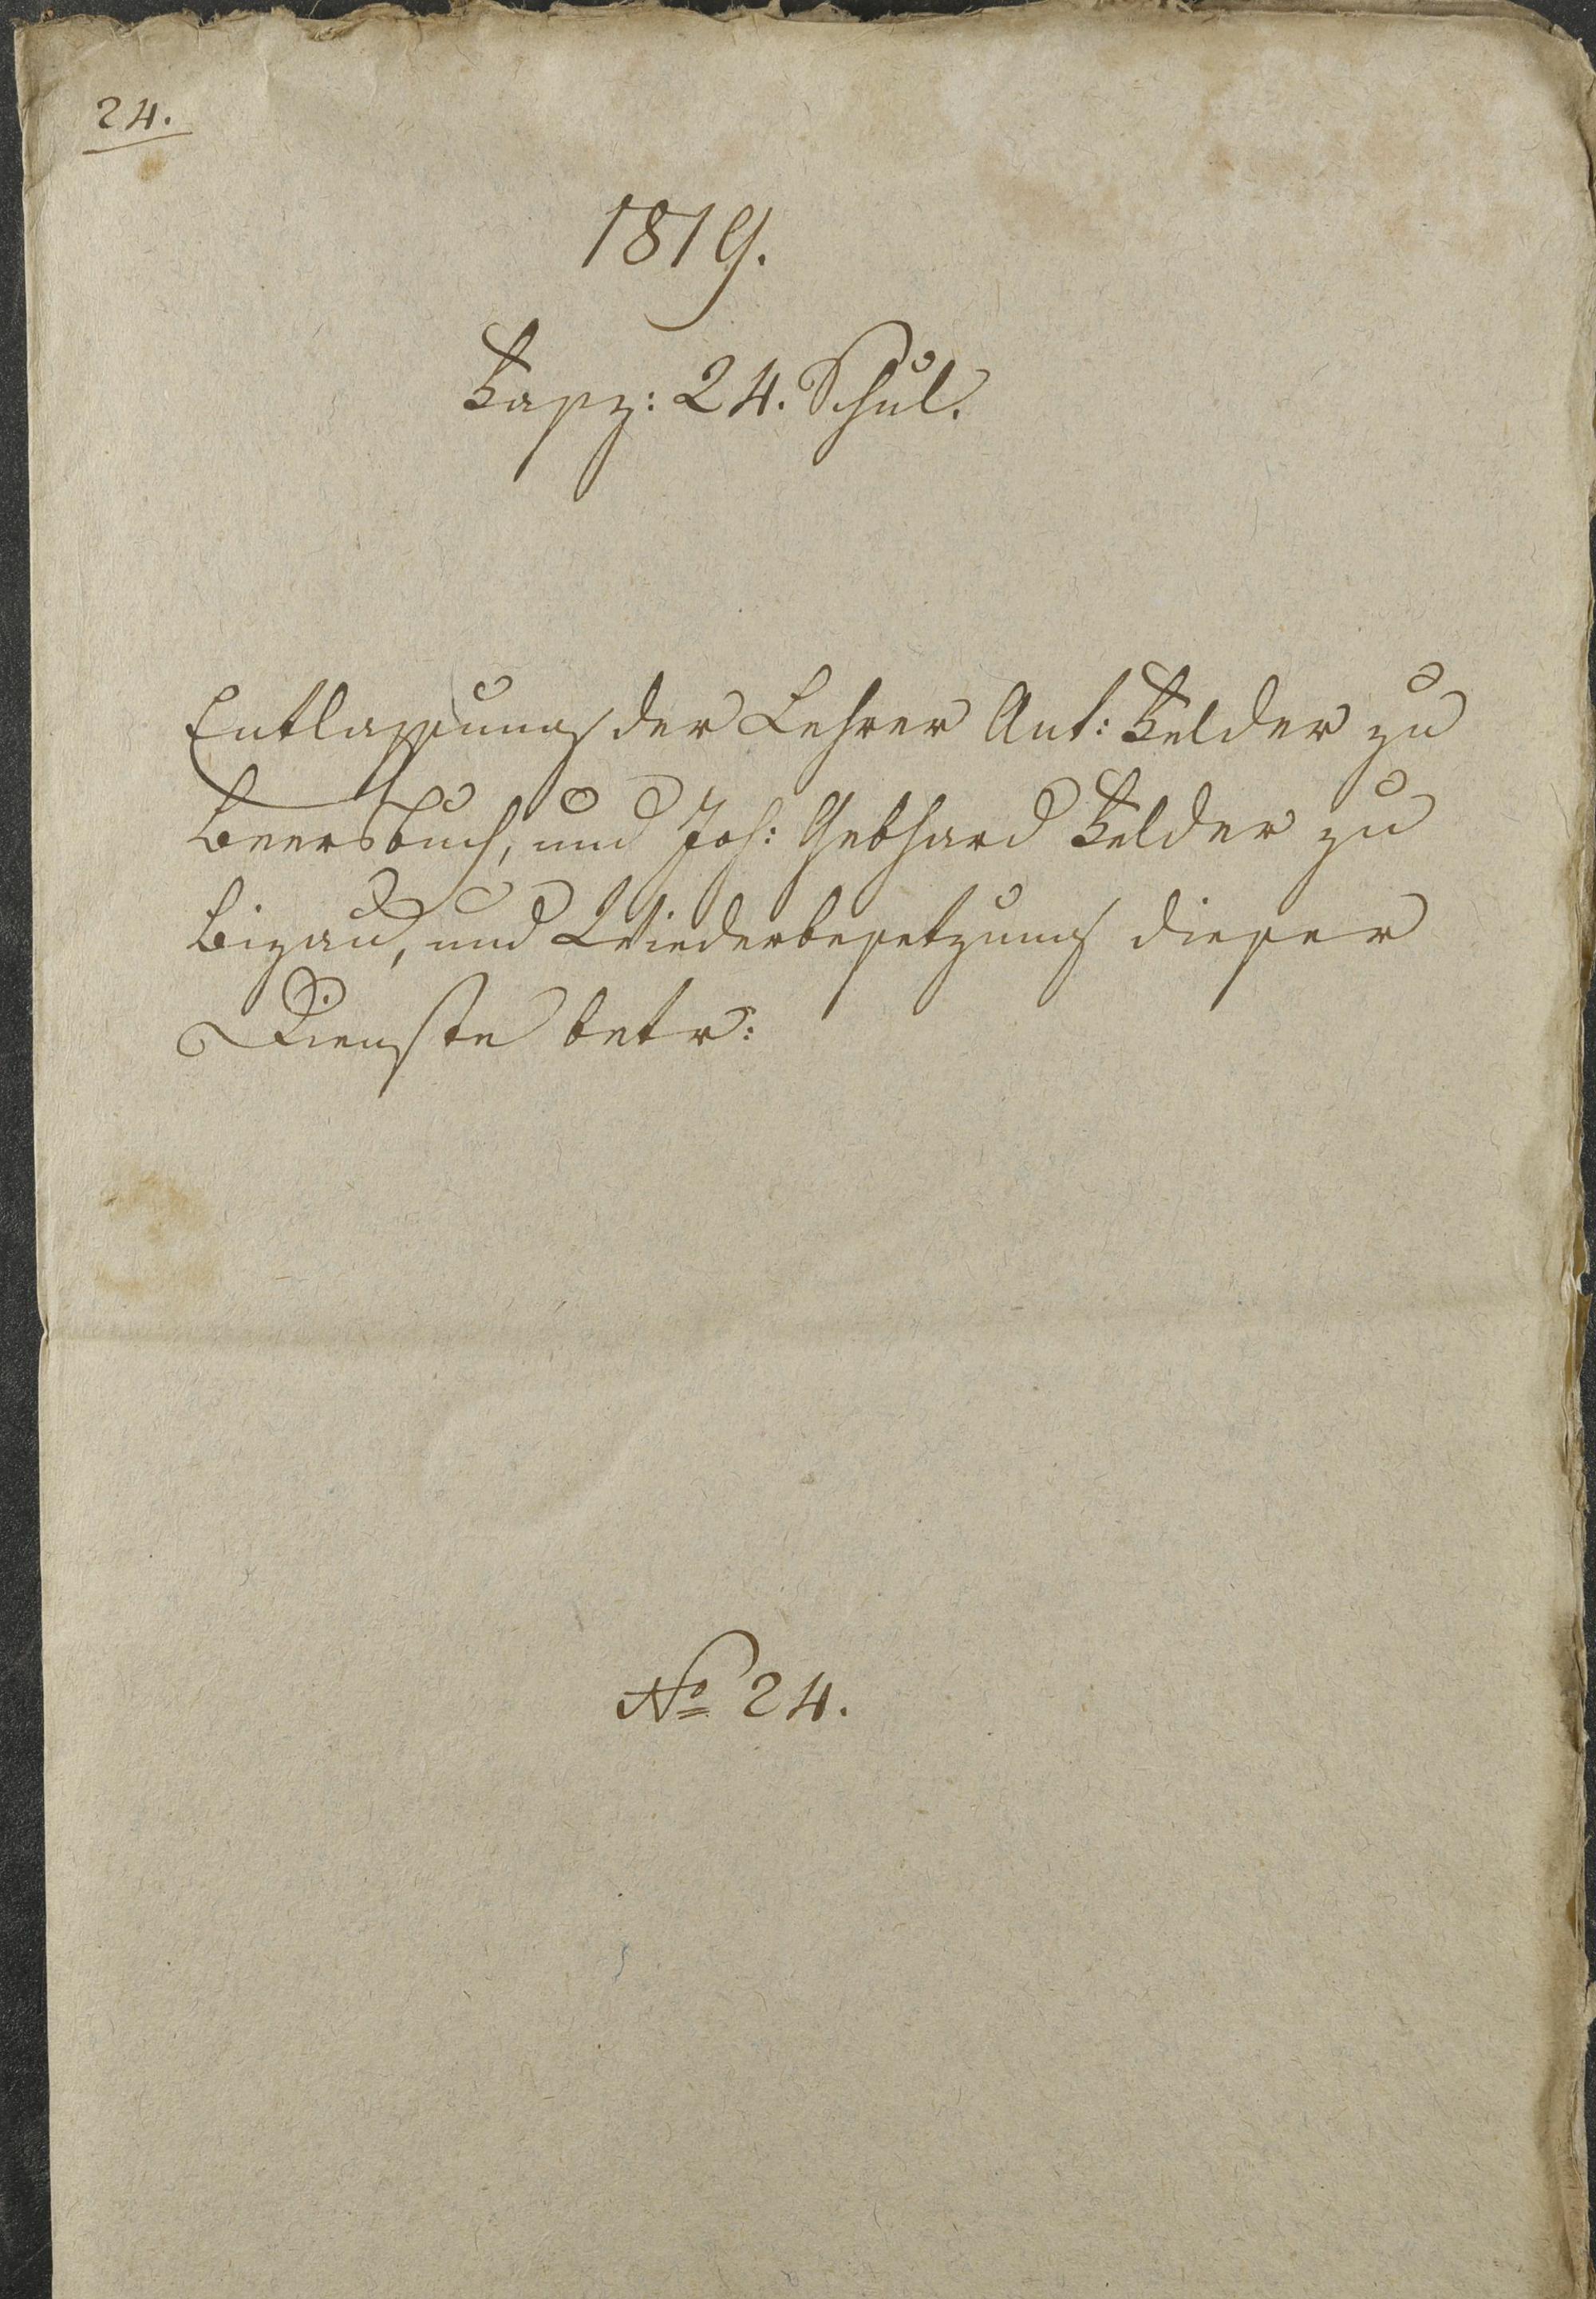 24.
1819.
Fasz: 24. Schul.
Entlassung der Lehrer Ant: Felder zu
Beersbuch, und Jos: Gebhard Felder zu
Bizau, und Wiederbesetzung dieser
Dienste betr:
No 24.